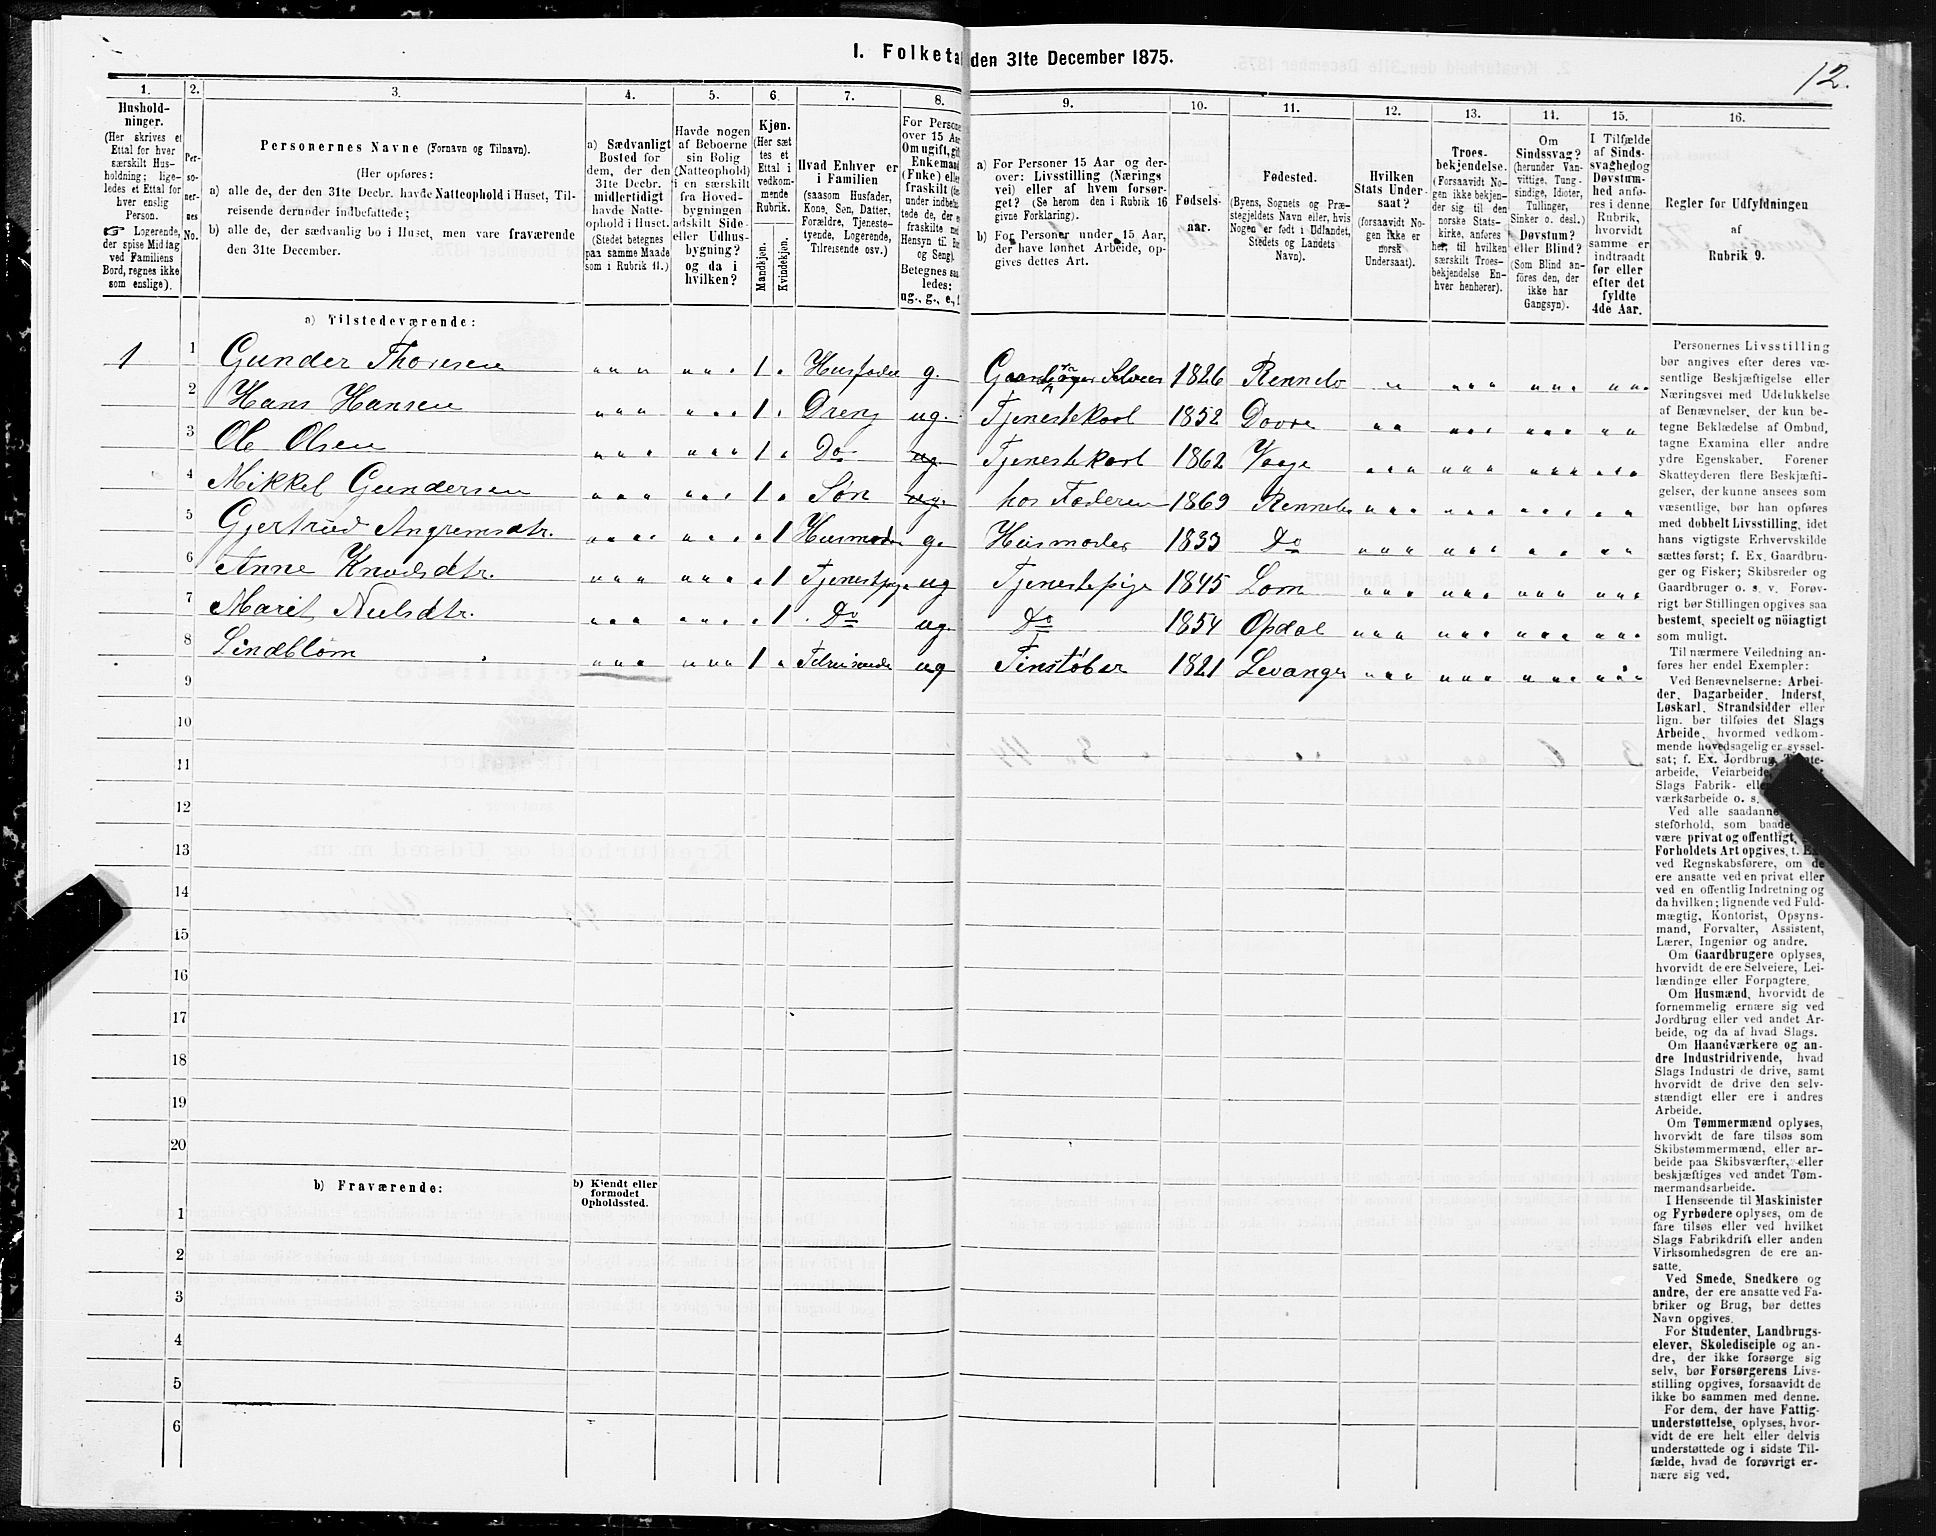 I. Folketal den 31te December 1875.
12.
1. 2. 3. 4. 5. 6. 7. 8. 9. 10. 11. 12. 13. 14. 15. 16.
Hushold-
ninger.
(Her skrives et
Ettal for hver
særskilt Hus-
holdning; lige-
ledes et Ettal for
hver enslig
Person.
☞ Logerende,
der spise Middag
ved Familiens
Bord, regnes ikke
som enslige).
Per-
so-
ner-
nes
No.
Personernes Navne (Fornavn og Tilnavn).
(Her opføres:
a) alle de, der den 31te Decbr. havde Natteophold i Huset, Til-
reisende derunder indbefattede;
b) alle de, der sædvanlig bo i Huset, men vare fraværende
den 31te December.
a) Sædvanligt
Bosted for
dem, der den
31te Decbr.
midlertidigt
havde Natte-
ophold i Huset.
(Stedet betegnes
paa samme Maade
som i Rubrik 11.)
Havde nogen
af Beboerne
sin Bolig
(Natteophold)
i en særskilt
fra Hoved-
bygningen
adskilt Side-
eller Udhus-
bygning?
og da i
hvilken?
Kjøn.
(Her sæt
tes et
Ettal i
vedkom-
mende
Rubrik.
Mandkjøn.
Kvindekjøn.
Hvad Enhver er
i Familien
(saasom Husfader,
Kone, Søn, Datter,
Forældre, Tjeneste-
tyende, Logerende,
Tilreisende osv.)
For Persone
over 15 Aar
Om ugift, gift
Enkemand
(Enke) eller
fraskilt
under indbe
tede de, der e
fraskilte
Hensyn til B
og Seng).
Betegnes saa
ledes:
ug., g., e.,
a) For Personer 15 Aar og der-
over: Livsstilling (Nærings
vei) eller af hvem forsør-
get? (Se herom den i Rubrik 16
givne Forklaring).
b) For Personer under 15 Aar,
der have lønnet Arbeide, op-
gives dettes Art.
Fødsels-
aar.
Fødested.
(Byens, Sognets og Præ-
stegjeldets Navn eller, hvis
Nogen er født i Udlandet,
Stedets og Landets
Navn).
Hvilken
Stats Under-
saat?
(forsaavidt No-
gen ikke er
norsk
Undersaat).
Troes-
bekjendelse.
(Forsaavidt No-
gen ikke bekjen-
der sig til den
norske Stats-
kirke, anføres
her, til hvilken
særskilt Troes-
bekjendelse En-
hver henhører).
Om
Sindssvag?
(herunder Van-
vittige, Tung-
sindige, Idioter,
Tullinger,
Sinker o. desl.)
Døvstum?
eller Blind?
(Som Blind an-
føres den, der
ikke har
Gangsyn).
I Tilfælde
af Sinds-
svaghed og
Døvstum-
hed anfø-
res i denne
Rubrik,
hvorvidt
samme er
indtraadt
før eller
efter det
fyldte
4de Aar.
Regler for Udfyldningen
af
Rubrik 9.
a) Tilstedeværende:
1 1 Gunder Thoresen " " " " " " 1 " Husfader g. Gaardbruger Selveier 1826 Rennebo
2 Hans Hansen " " " " " " 1 " Dreng ug. Tjenestekarl 1852 Dovre
3 Ole Olsen " " " " " " 1 " Do ug. Tjenestekarl 1862 Vaage
4 Mikkel Gundersen " " " " " " 1 " Søn ug. hos Faderen 1869 Rennebo
5 Gjertrud Angremsdtr. " " " " " " " 1 Husmoder g. Husmoder 1833 Do
6 Anne Knudsdtr. " " " " " " " 1 Tjenestepige ug Tjenestepige 1845 Lom
7 Marit Nielsdtr. " " " " " " " 1 Do ug. Do 1854 Opdal
8 Lindblom " " " " " " 1 " Tilreisende ug Tinstøber 1821 Levanger
9
10
11
12
13
14
15
16
17
18
19
20
b) Fraværende:
b) Kjendt eller
formodet
Opholdssted.
1
2
3
4
5
6
Personernes Livsstilling
bør angives efter deres væ-
sentlige Beskjæftigelse eller
Næringsvei med Udelukkelse
af Benævnelser, der kun be-
tegne Beklædelse af Ombud,
tagne Examina eller andre
ydre Egenskaber. Forener
Skatteyderen flere Beskjæfti-
gelser, der kunne ansees som
væsentlige, bør han opføres
med dobbelt Livsstilling, idet
hans vigtigste Erhvervskilde
sættes først; f. Ex. Gaardbru-
ger og Fisker; Skibsreder og
Gaardbruger o. s. v. Forøv-
rigt bør Stillingen opgives saa
bestemt, specielt og nøiagtigt
som muligt.
Til nærmere Veiledning an-
føres her endel Exempler:
Ved Benævnelserne: Arbei-
der, Dagarbeider, Inderst,
Løskarl, Strandsidder eller
lign. bør tilføies det Slags
Arbeide, hvormed vedkom-
mende hovedsagelig er syssel-
sat; f. Ex. Jordbrug,
arbeide, Veiarbeide,
Slags Fabrik- elle
værksarbeide o. s.
Ved alle saadanne
steforhold, som baade
være privat og offentligt,
Forholdets Art opgives, t. Ex.
ved Regnskabsførere, om de
ere ansatte ved en privat eller
ved en offentlig Indretning og
da hvilken; lignende ved Fuld-
mægtig, Kontorist, Opsyns-
mand, Forvalter, Assistent,
Lærer, Ingeniør og andre.
Om Gaardbrugere oplyses,
hvorvidt de ere Selveiere, Lei-
lændinge eller Forpagtere.
Om Husmænd, hvorvidt de
fornemmelig ernære sig ved
Jordbrug eller ved andet Ar-
beide, og da af hvad Slags.
Om Haandværkere og an-
dre Industridrivende, hvad
Slags Industri de drive, samt
hvorvidt de drive den selv-
stændigt eller ere i andres
Arbeide.
Om Tømmermænd oplyses,
hvorvidt de fare tilsøs som
Skibstømmermænd, eller ar-
beide paa Skibsværfter, eller
beskjæftiges ved andet Tøm-
mermandsarbeide.
I Henseende til Maskinister
og Fyrbødere oplyses, om de
fare tilsøs eller ved hvilket
Slags Fabrikdrift eller anden
Virksomhedsgren de ere an-
satte.
Ved Smede, Snedkere og
andre, der ere ansatte ved Fa-
briker og Brug, bør dettes
Navn opgives.
For Studenter, Landbrugs-
elever, Skoledisciple og an-
dre, der ikke forsørge sig
selv, bør Forsørgerens Livs-
stilling opgives, forsaavidt de
ikke bo sammen med denne.
For dem, der have Fattig-
understøttelse, oplyses, hvor-
vidt de ere helt eller delvis
understøttede og i sidste Til-
fælde, hvad de forøvrigt er-
nære sig ved.